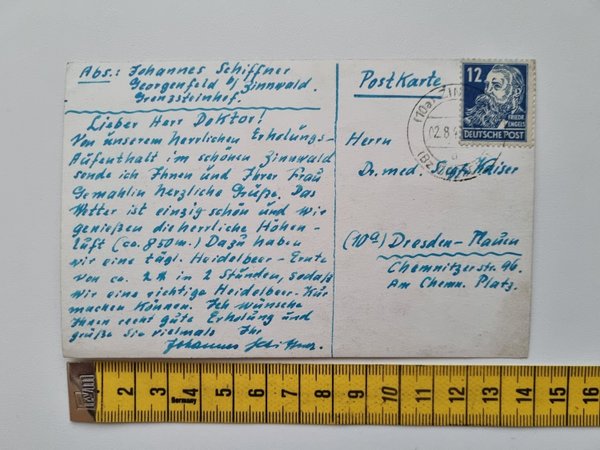 Abs.: Johannes Schiffner
Georgenfeld b/ Zinnwald.
Grenzsteinhof.
Lieber Herr Doktor!
Von unserem herrlichen Erholungs-
Aufenthalt im schönen Zinnwald
sende ich Ihnen und Ihrer Frau
Gemahlin herzliche Grüße. Das
Wetter ist einzig schön und wir
genießen die herrliche Höhen-
luft (ca. 850 m.) Dazu haben
wir eine tägl. Heidelbeer-Ernte
von ca. 2 in 2 Stunden, sodaß
wir eine richtige Heidelbeer-Kur
machen können. Ich wünsche
Ihnen recht gute Erholung und
grüße Sie vielmals Ihr
Johannes Schiffner.
Postkarte
12
FRIEDR.
ENGELS
DEUTSCHE POST
(10a)
02.8.4
(Bz.
Herrn
Dr. med. Kaiser
(10a) Dresden-Plauen
Chemnitzerstr. 96.
Am Chemn. Platz.
2 3 4 5 6 7 8 9 10 11 12 13 14 15 16
Germany